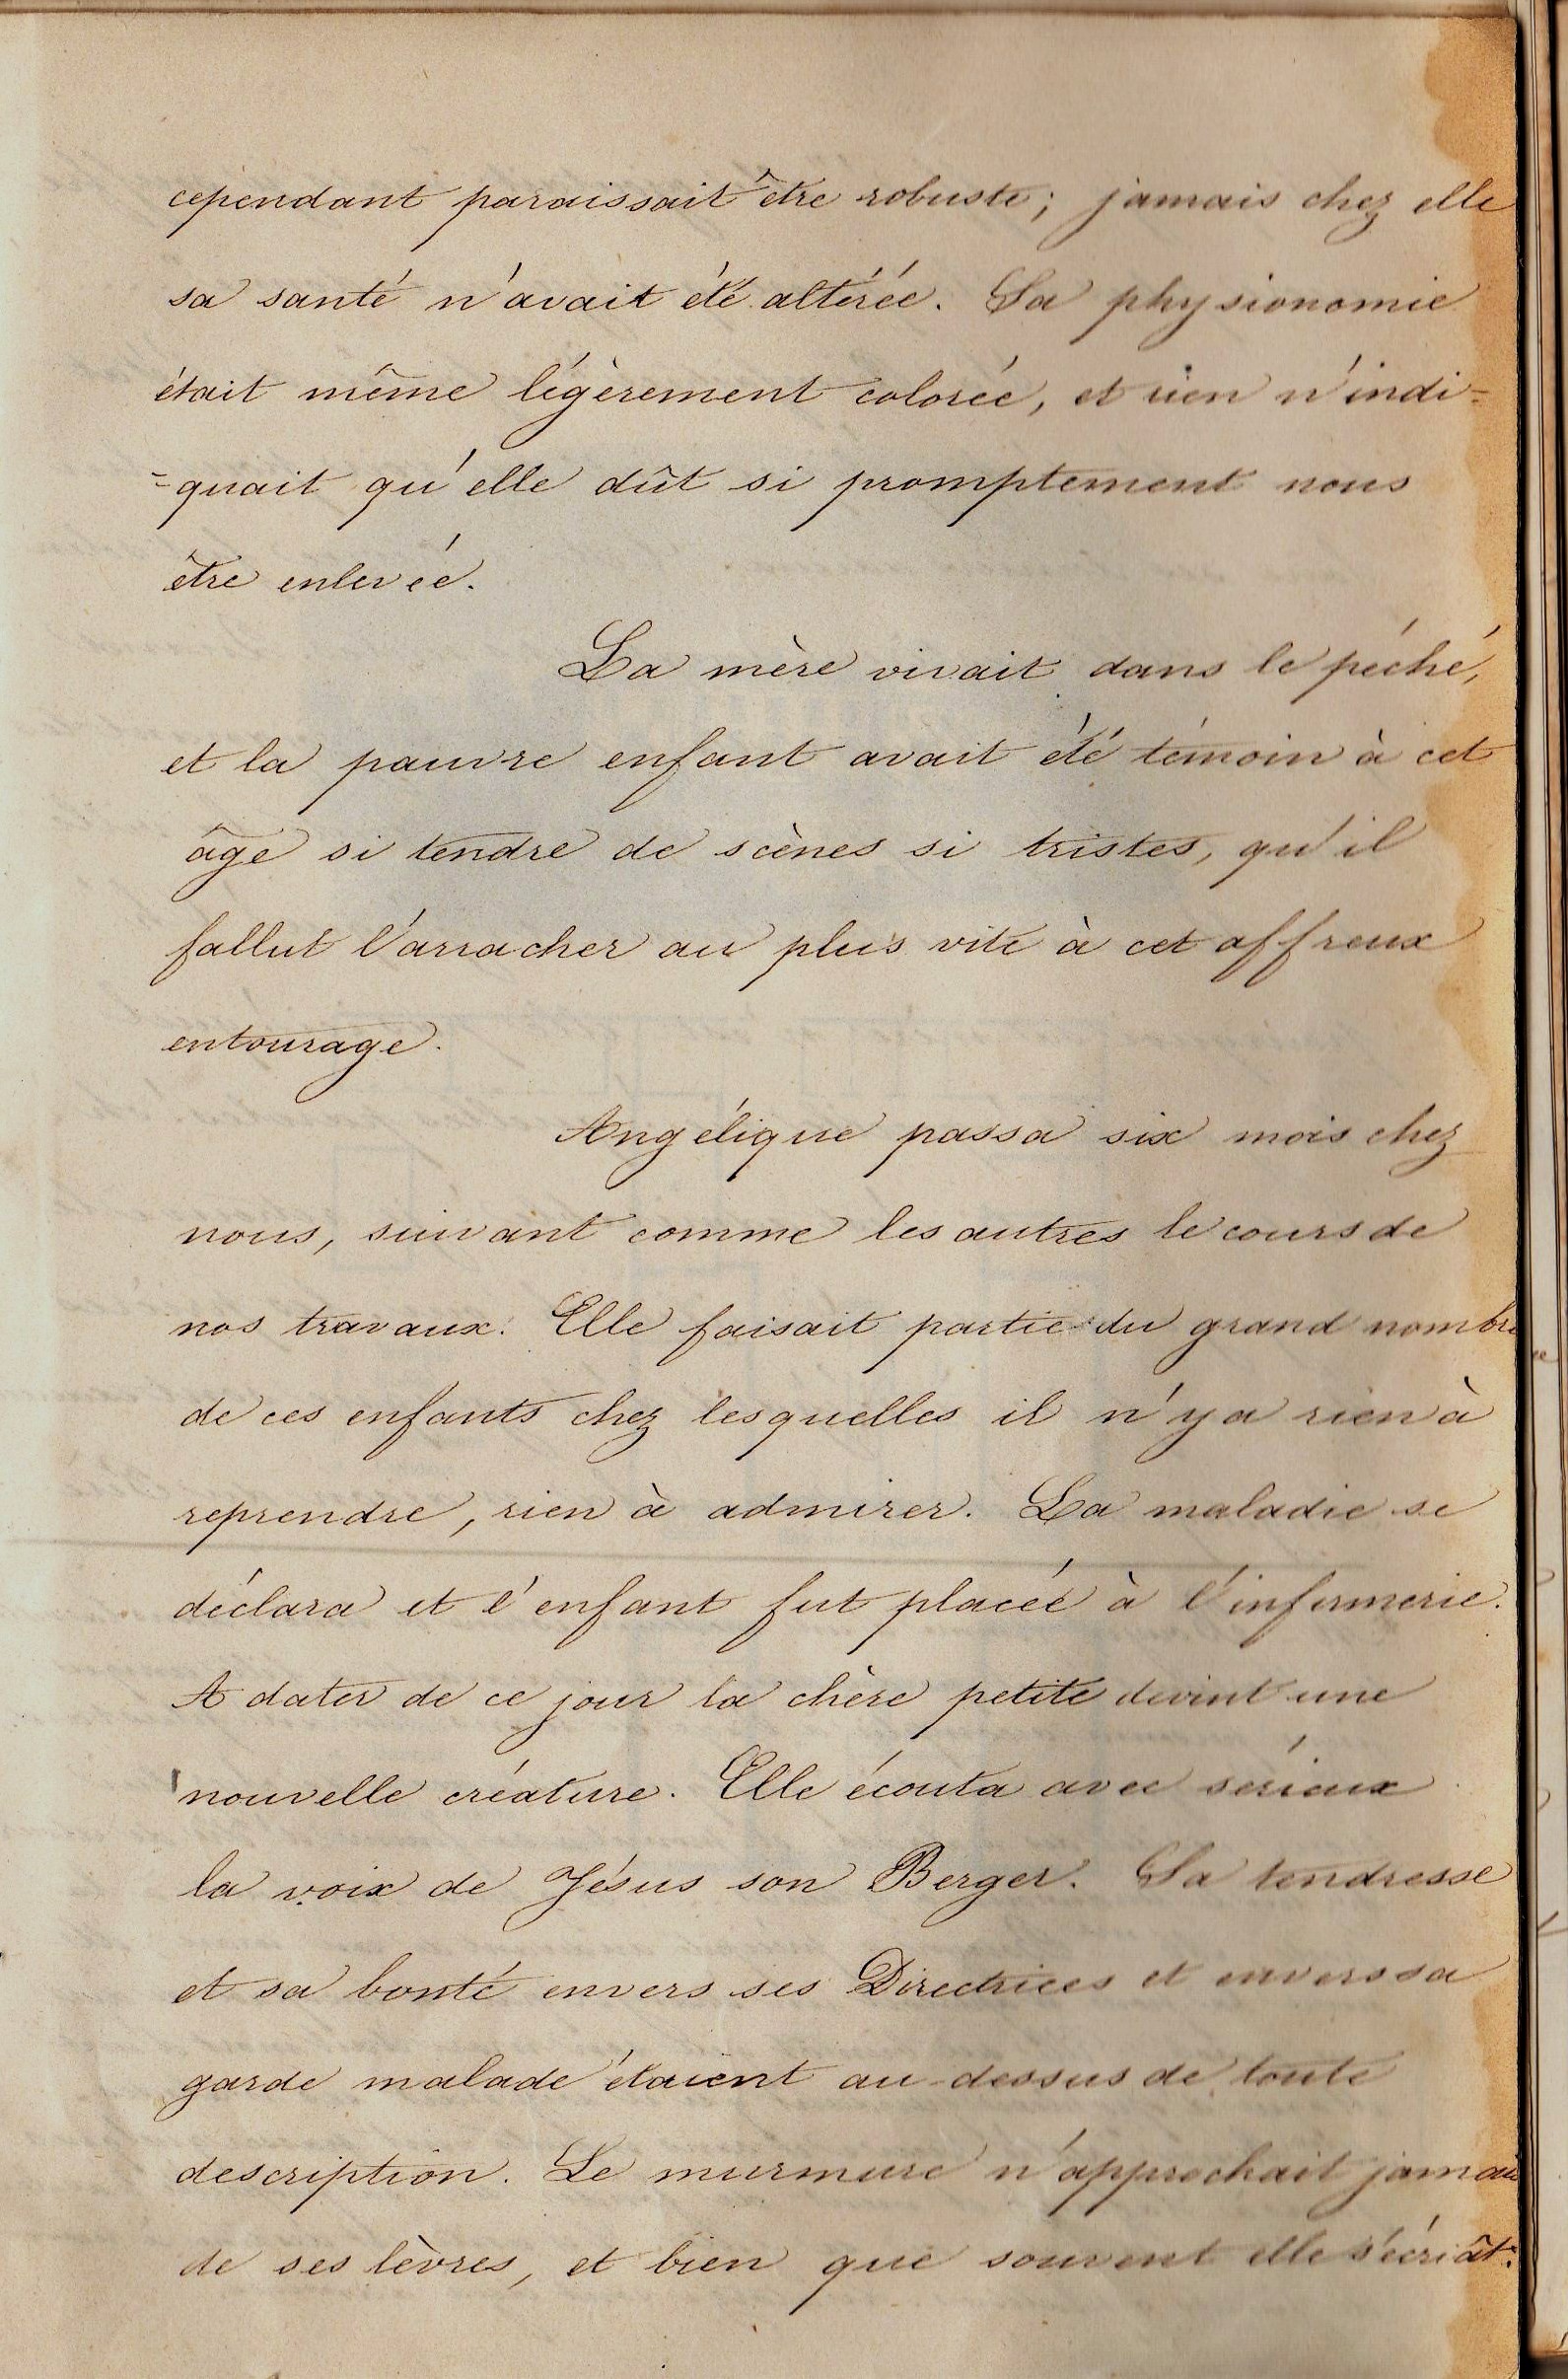 cependant paraissait être robuste; jamais chez elle
sa santé n'avait été altérée. Sa physionomie
était même légèrement colorée, et rien n'indi=
=quait qu'elle dût si promptement nous
être enlevée.
La mère vivait dans le péché,
et la pauvre enfant avait été témoin à cet
âge si tendre de scènes si tristes, qu'il
fallut l'arracher au plus vite à cet affreux
entourage.
Angélique passa six mois chez
nous, suivant comme les autres le cours de
nos travaux. Elle faisait partie du grand nombre
de ces enfants chez lesquelles il n'y a rien à
reprendre, rien à admirer. La maladie se
déclara et l'enfant fut placée à l'infirmerie.
A dater de ce jour la chère petite devint une
nouvelle créature. Elle écouta avec sérieux
la voix de Jésus son Berger. Sa tendresse
et sa bonté envers ses Directrices et envers sa
garde malade étaient au-dessus de toute
description. Le murmure n'approchait jamais
de ses lèvres, et bien que souvent elle s'écriât: